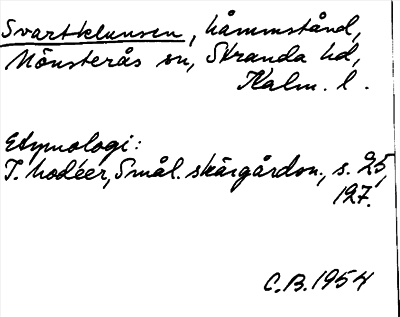 Svartklunsen, håmmstånd,
Mönsterås sn, Stranda hd,
Kalm. l.
Etymologi:
I. Modéer, Smål. skärgårdsn., s. 25,
127.
C.B. 1954